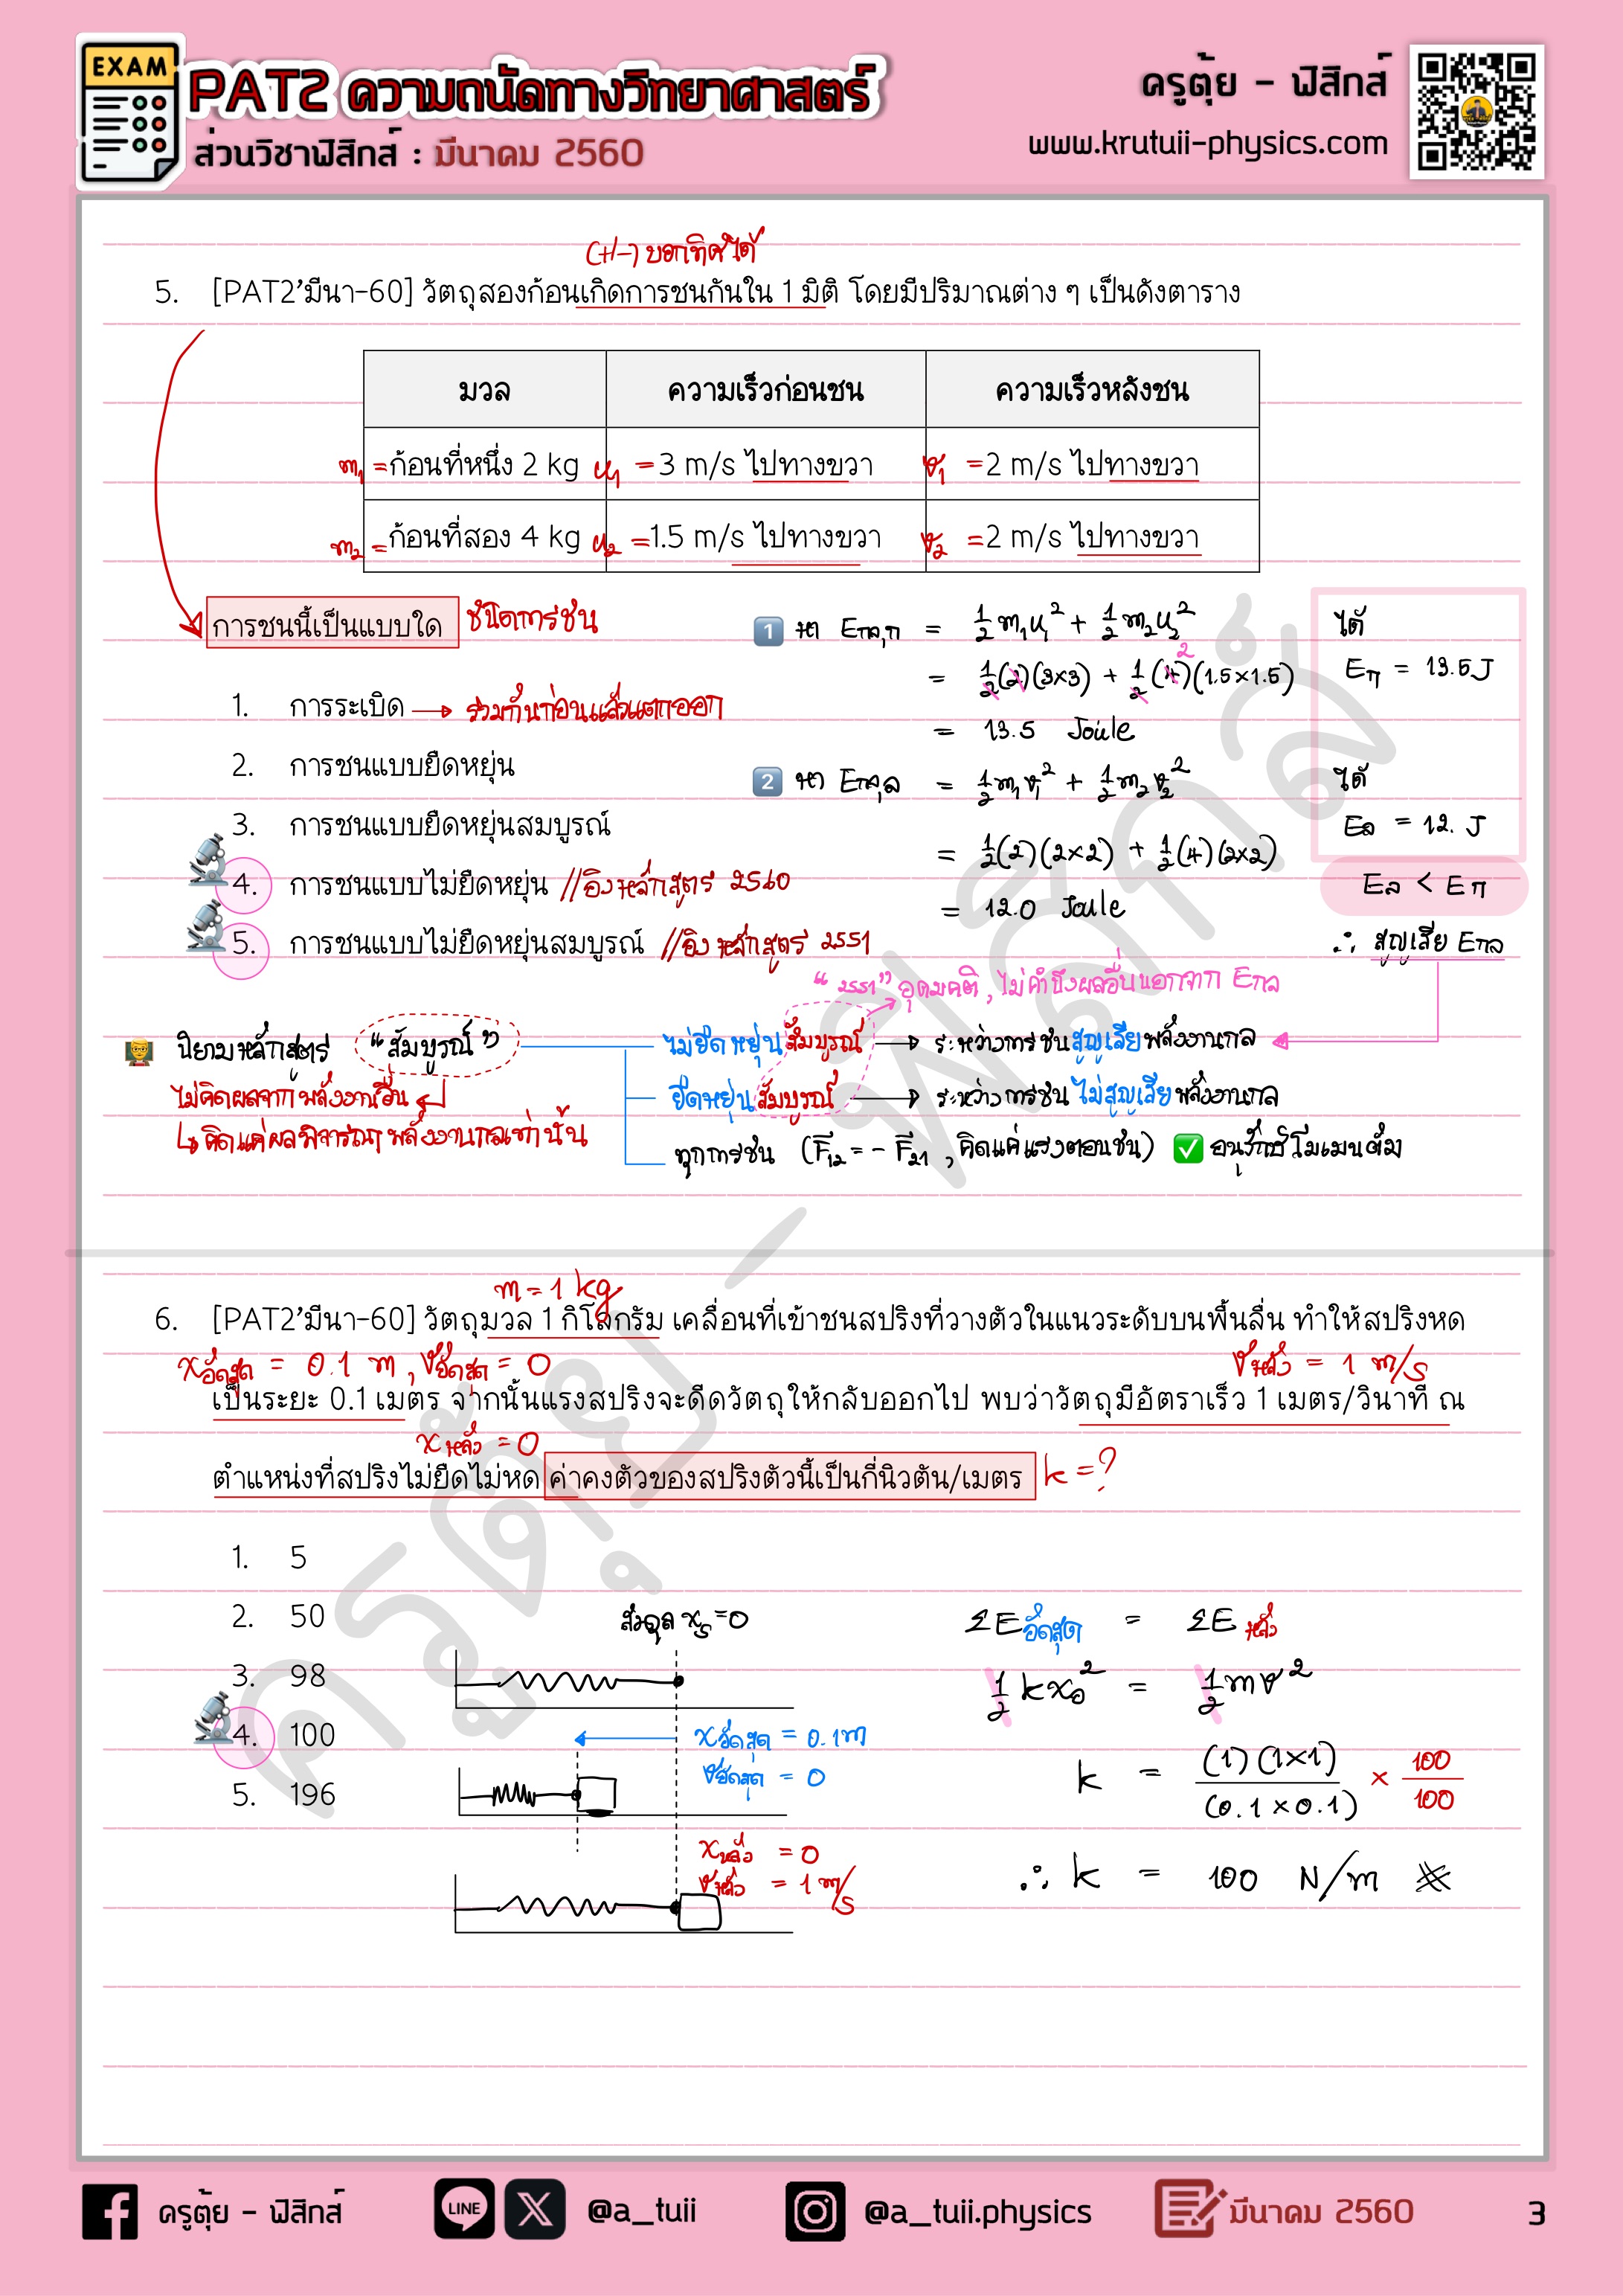 EXAM
PAT2 ความถนัดทางวิทยาศาสตร์
ส่วนวิชาฟิสิกส์ : มีนาคม 2560
ครูตุ้ย - ฟิสิกส์
www.krutuii-physics.com
(+/-) บอกทิศได้
5. [PAT2'มีนา-60] วัตถุสองก้อนเกิดการชนกันใน 1 มิติ โดยมีปริมาณต่าง ๆ เป็นดังตาราง
มวล ความเร็วก่อนชน ความเร็วหลังชน
m₁ = ก้อนที่หนึ่ง 2 kg u₁ = 3 m/s ไปทางขวา v₁ = 2 m/s ไปทางขวา
m₂ = ก้อนที่สอง 4 kg u₂ = 1.5 m/s ไปทางขวา v₂ = 2 m/s ไปทางขวา
การชนนี้เป็นแบบใด ชนิดการชน
1. การระเบิด → ร่วมกันก่อนแล้วแตกออก
2. การชนแบบยืดหยุ่น
3. การชนแบบยืดหยุ่นสมบูรณ์
4. การชนแบบไม่ยืดหยุ่น //อิงหลักสูตร 2560
5. การชนแบบไม่ยืดหยุ่นสมบูรณ์ //อิงหลักสูตร 2551
1 หา Eกล,ก = ½m₁u₁² + ½m₂u₂²
= ½(2)(3×3) + ½(4)(1.5×1.5)
2
= 13.5 Joule
2 หา Eกล,ล = ½m₁v₁² + ½m₂v₂²
= ½(2)(2×2) + ½(4)(2×2)
= 12.0 Joule
ได้
Eก = 13.5 J
ได้
Eล = 12. J
Eล < Eก
∴ สูญเสีย Eกล
"2551" อุดมคติ, ไม่คำนึงผลอื่นนอกจาก Eกล
นิยามหลักสูตร "สมบูรณ์"
ไม่คิดผลจากพลังงานอื่น
↳ คิดแค่ผลพิจารณาพลังงานกลเท่านั้น
ไม่ยืดหยุ่นสมบูรณ์ → ระหว่างการชนสูญเสียพลังงานกล
ยืดหยุ่นสมบูรณ์ → ระหว่างการชน ไม่สูญเสียพลังงานกล
ทุกการชน (F₁₂ = - F₂₁, คิดแค่แรงตอนชน) ✅ อนุรักษ์โมเมนตัม
m = 1 kg
6. [PAT2'มีนา-60] วัตถุมวล 1 กิโลกรัม เคลื่อนที่เข้าชนสปริงที่วางตัวในแนวระดับบนพื้นลื่น ทำให้สปริงหด
xอัดสุด = 0.1 m, vอัดสุด = 0 vหลัง = 1 m/s
เป็นระยะ 0.1 เมตร จากนั้นแรงสปริงจะดีดวัตถุให้กลับออกไป พบว่าวัตถุมีอัตราเร็ว 1 เมตร/วินาที ณ
xหลัง = 0
ตำแหน่งที่สปริงไม่ยืดไม่หด ค่าคงตัวของสปริงตัวนี้เป็นกี่นิวตัน/เมตร k = ?
1. 5
2. 50
3. 98
4. 100
5. 196
สมดุล xₛ = 0
xอัดสุด = 0.1 m
vอัดสุด = 0
xหลัง = 0
vหลัง = 1 m/s
ΣEอัดสุด = ΣEหลัง
½kx₀² = ½mv²
k = (1)(1×1)/(0.1×0.1) × 100/100
∴ k = 100 N/m
ครูตุ้ย - ฟิสิกส์
ครูตุ้ย - ฟิสิกส์
LINE
@a_tuii
@a_tuii.physics
มีนาคม 2560
3